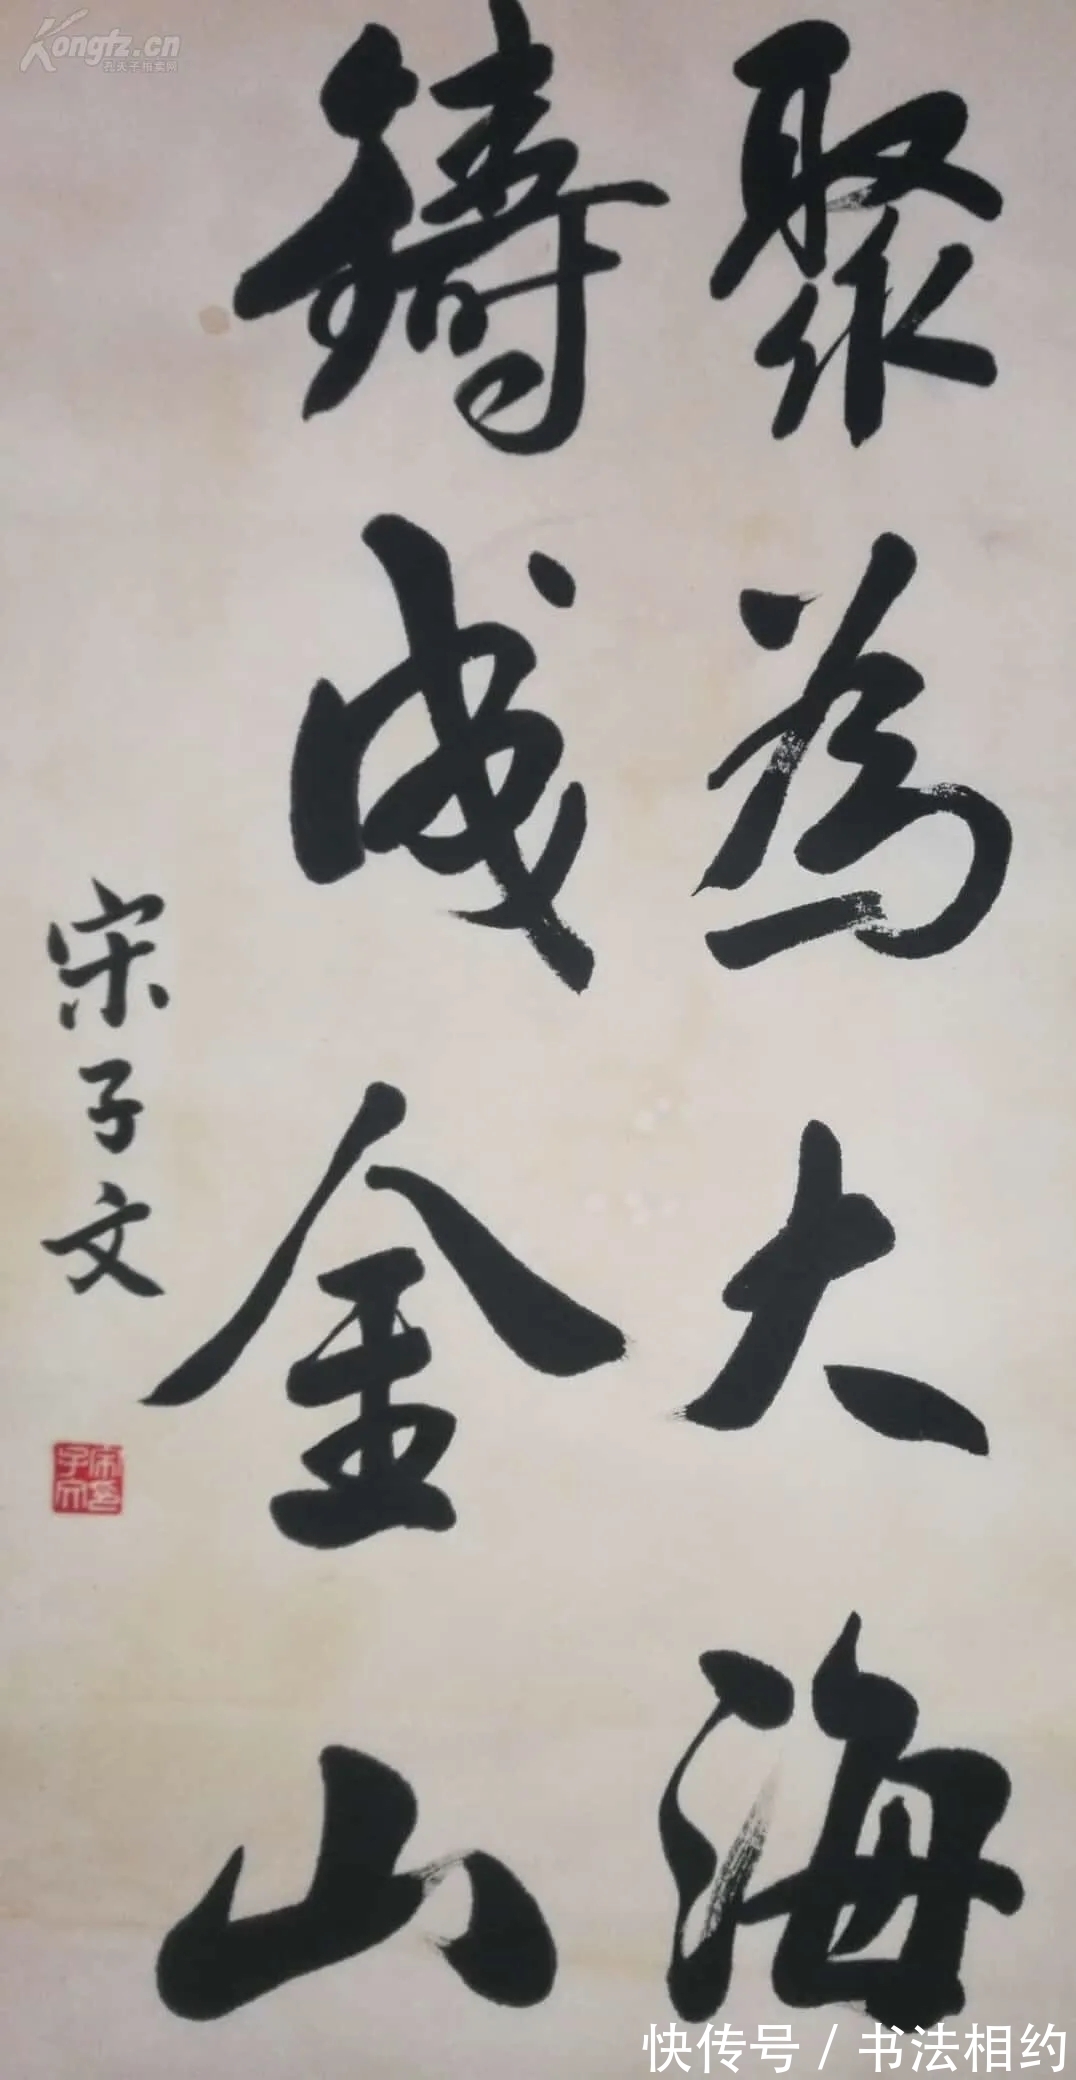 聚為大海
鑄成金山
宋子文
宋子文印
Kongfz.cn
孔夫子拍卖网
快传号 / 书法相约